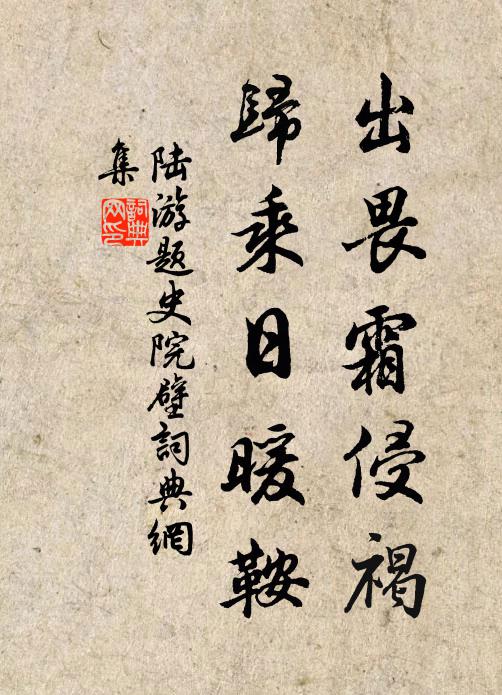 出畏霜侵褐
歸乘日暖鞍
陆游题史院壁詞典網
集
詞典
网印